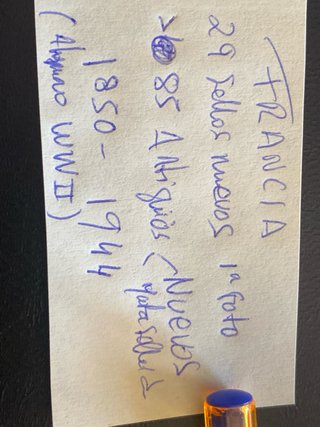 FRANCIA
29 Sellos nuevos 1ª foto
> 85 Antiguos < Nuevos
matasellad
1850 - 1944
(Alguno WWII)